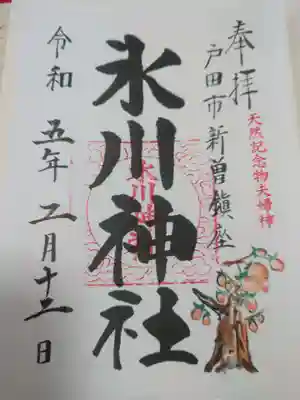 奉拝
天然記念物夫婦柿
戸田市新曽鎮座
氷川神社
令和五年二月十二日